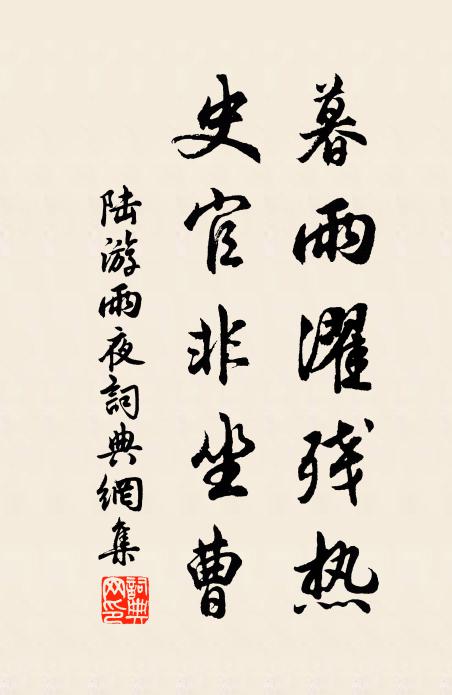 暮雨濯残热
史官非坐曹
陆游雨夜詞典網集
詞典网印